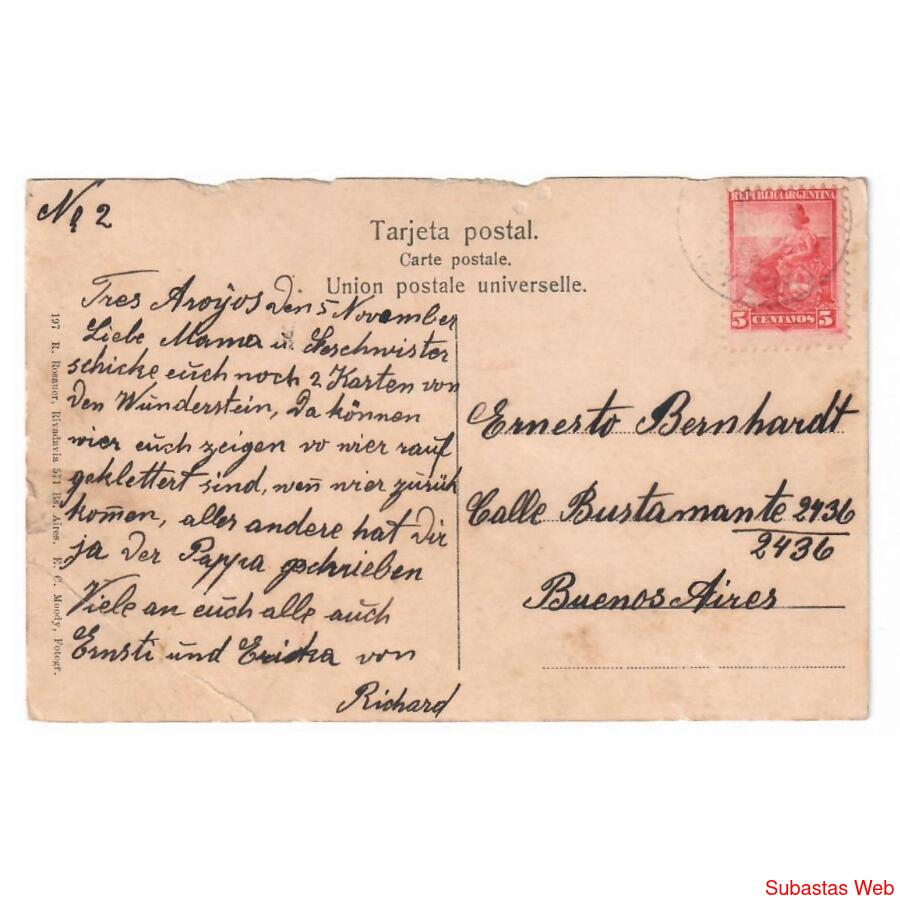 No 2
Tarjeta postal.
Carte postale.
Union postale universelle.
REPUBLICA ARGENTINA
5 CENTAVOS 5
Tres Aroÿos Den 5 November
Liebe Mama u Geschwister
schicke euch noch 2 Karten von
Den Wunderstein, Da können
wier euch zeigen vo wier rauf
geklettert sind, wen̄ wier zurük
kom̄en, alles andere hat Dir
ja Der Pappa geschrieben
Viele an euch alle auch
Ernsti und Ericka von
Richard
Ernerto Bernhardt
Calle Bustamante 2436
2436
Buenos Aires
197 R. Rosauer, Rivadavia 571 Bs. Aires. E. C. Moody, Fotogr.
Subastas Web